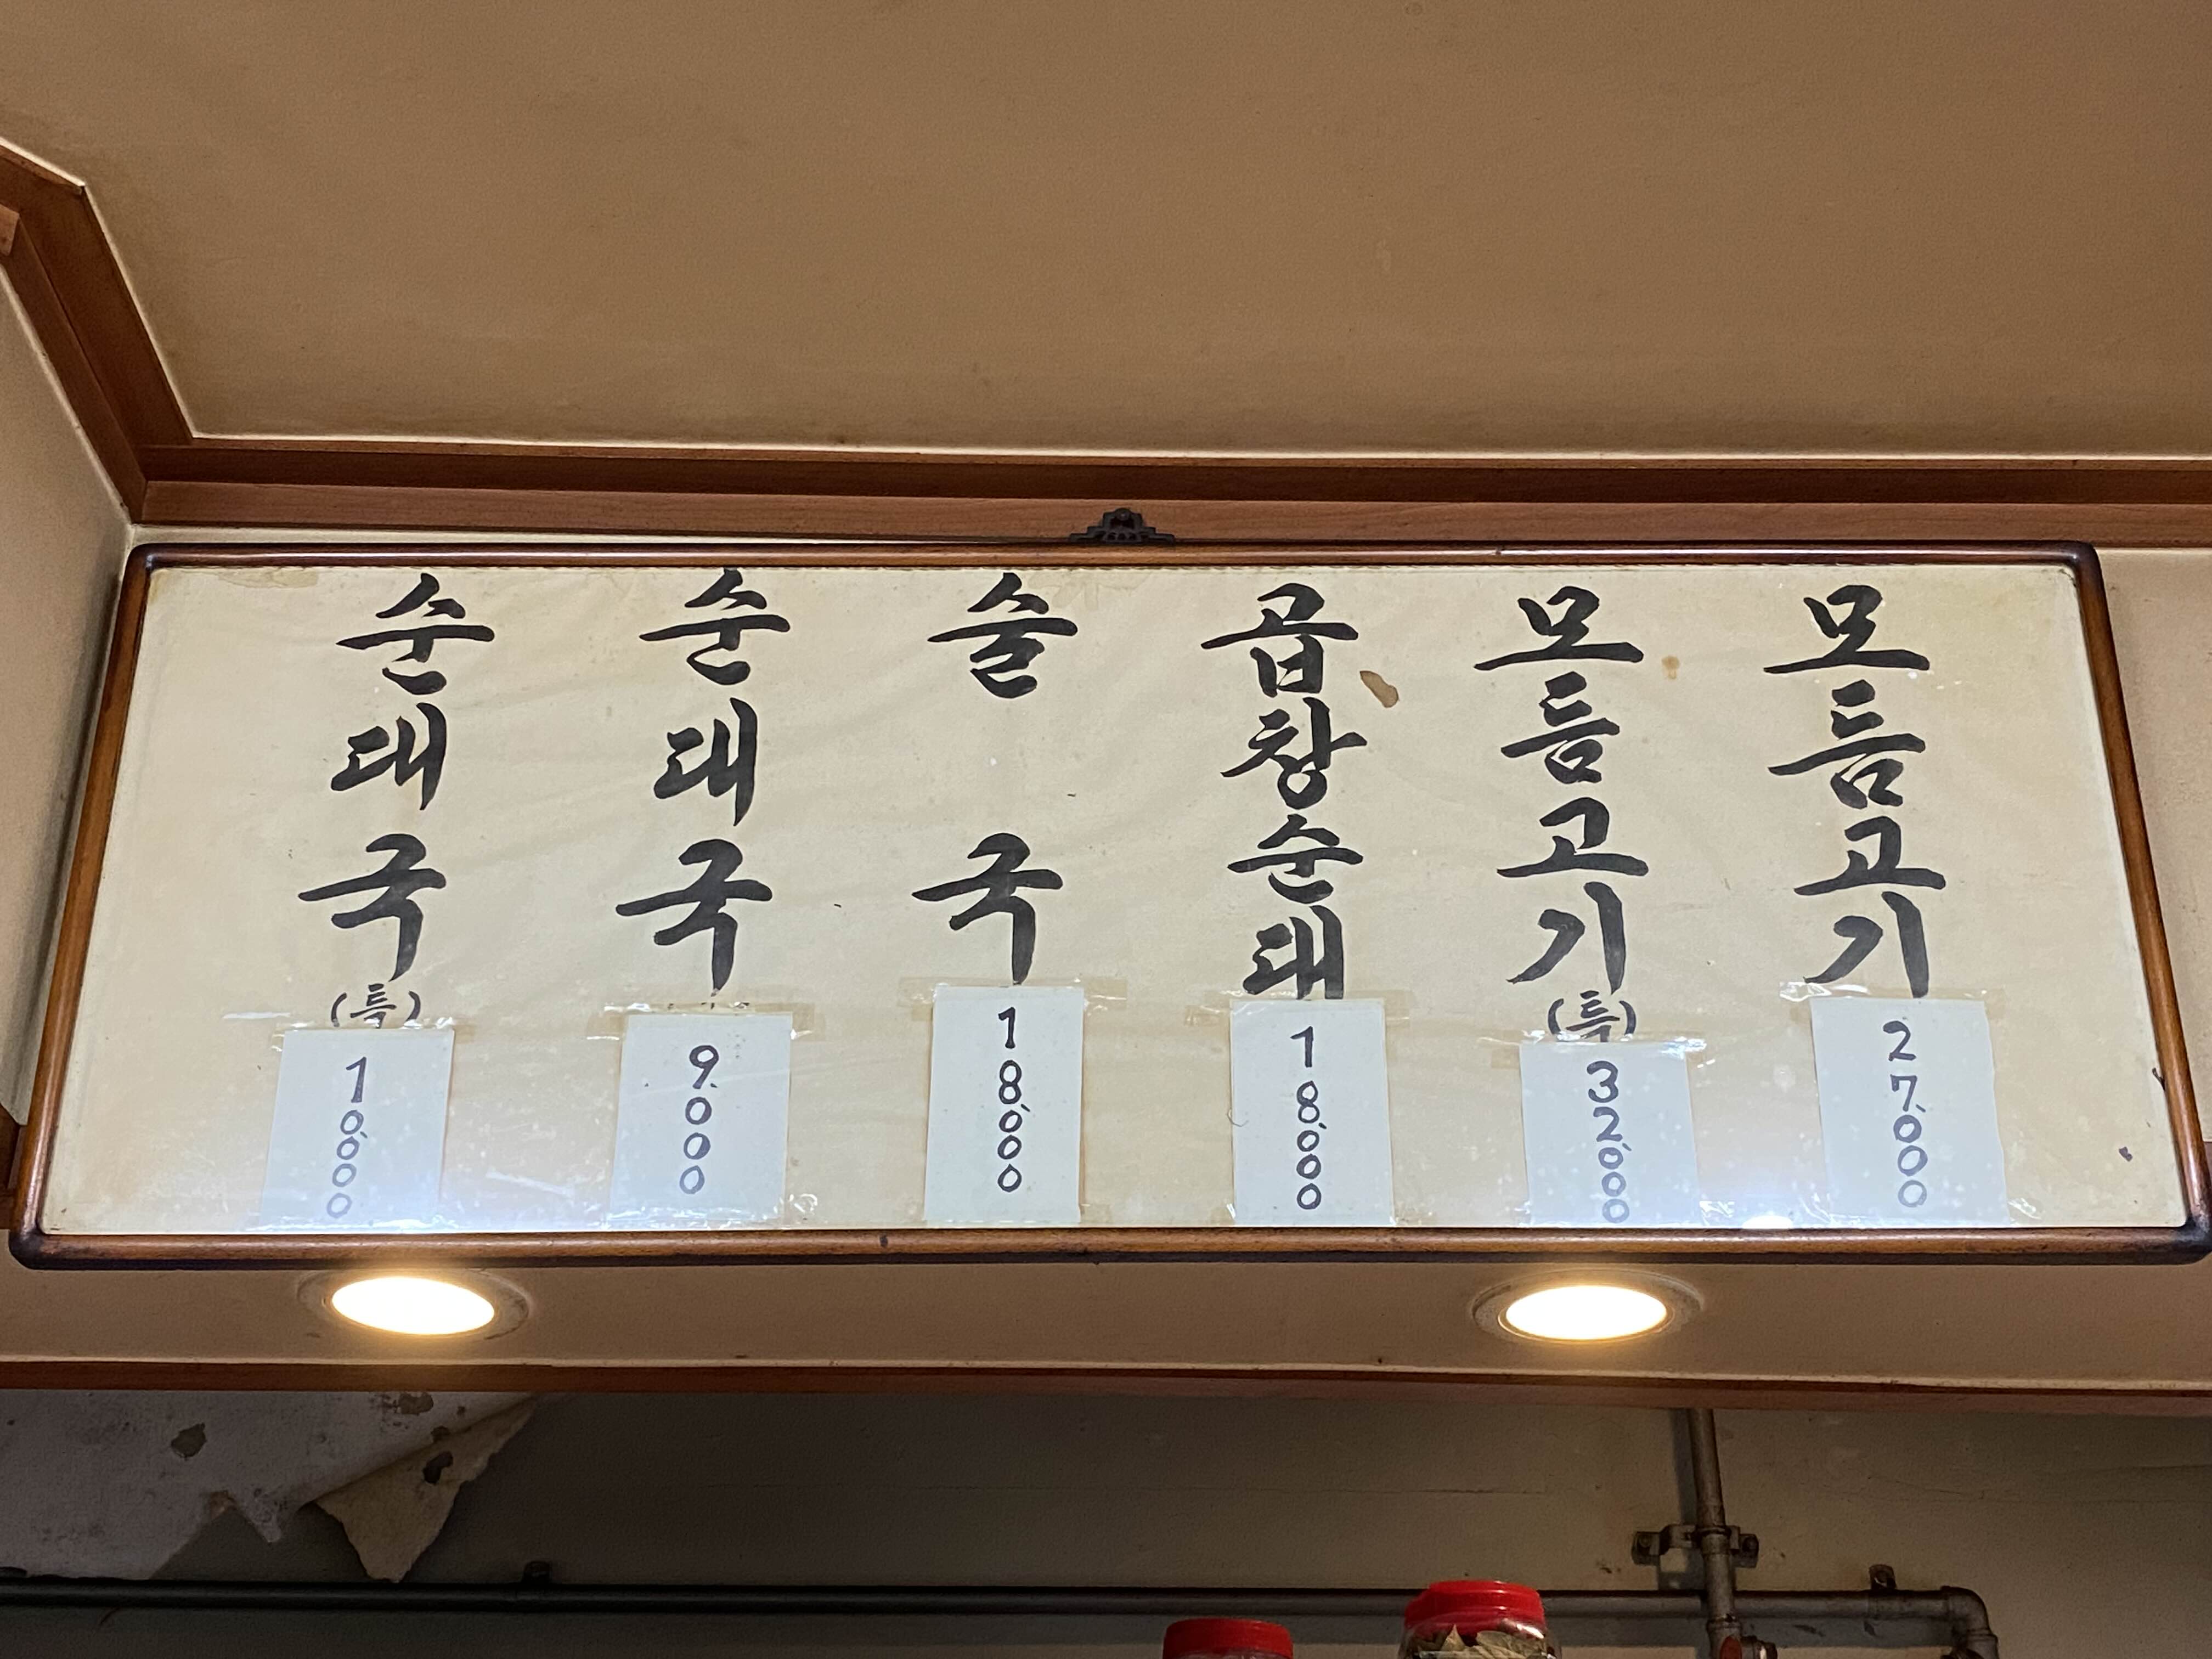 순대국(특) 10,000
순대국 9,000
술국 18,000
곱창순대 18,000
모듬고기(특) 32,000
모듬고기 27,000